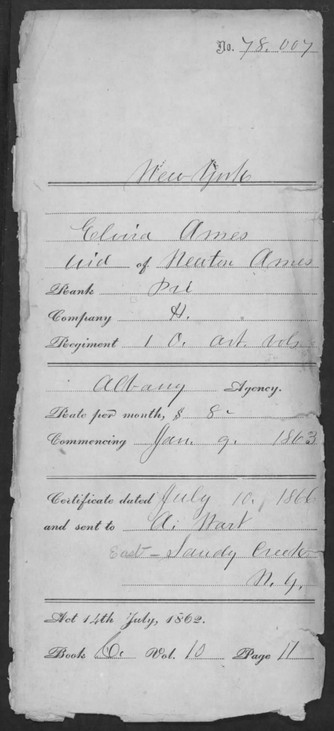 No. 78.007
New York
Elvira Ames
Wid of Newton Ames
Rank Pri
Company H.
Regiment 1 O. Art. Vols
Albany Agency.
Rate per month, $ 8-
Commencing Jan. 9. 1863
Certificate dated July 10. 1866
and sent to A. Wart
East - Sandy Creek
N.Y.
Act 14th July, 1862.
Book C. Vol. 10 Page 11